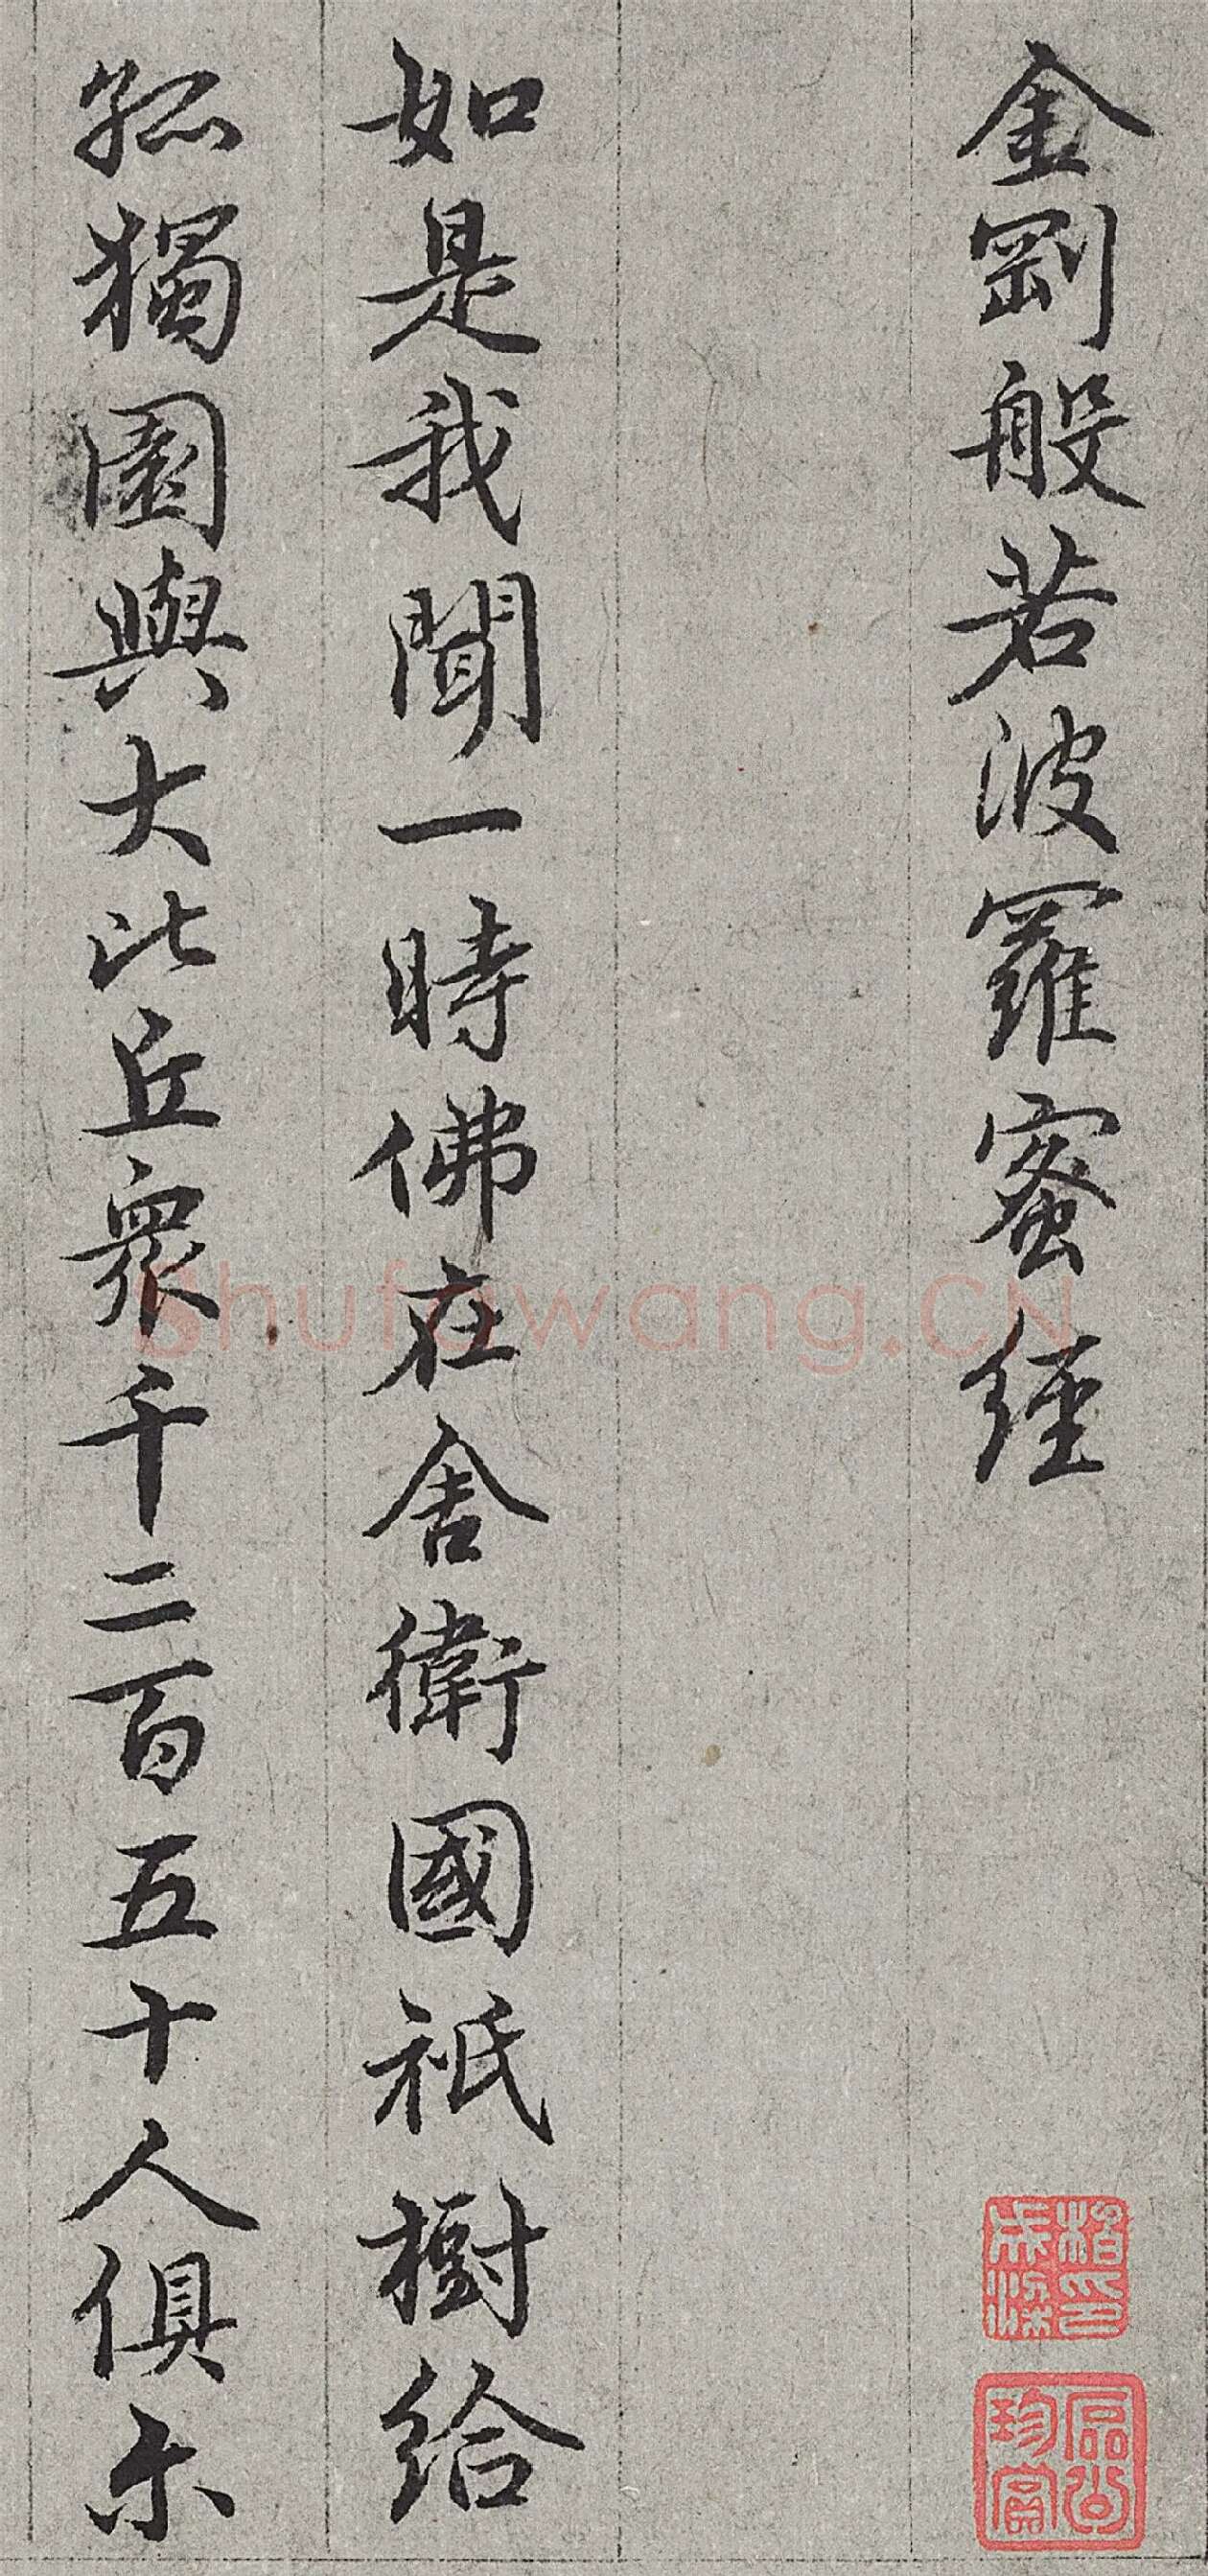 金剛般若波羅蜜經
如是我聞一時佛在舍衛國祇樹給
孤獨園與大比丘衆千二百五十人俱尓
Shufawang.CN